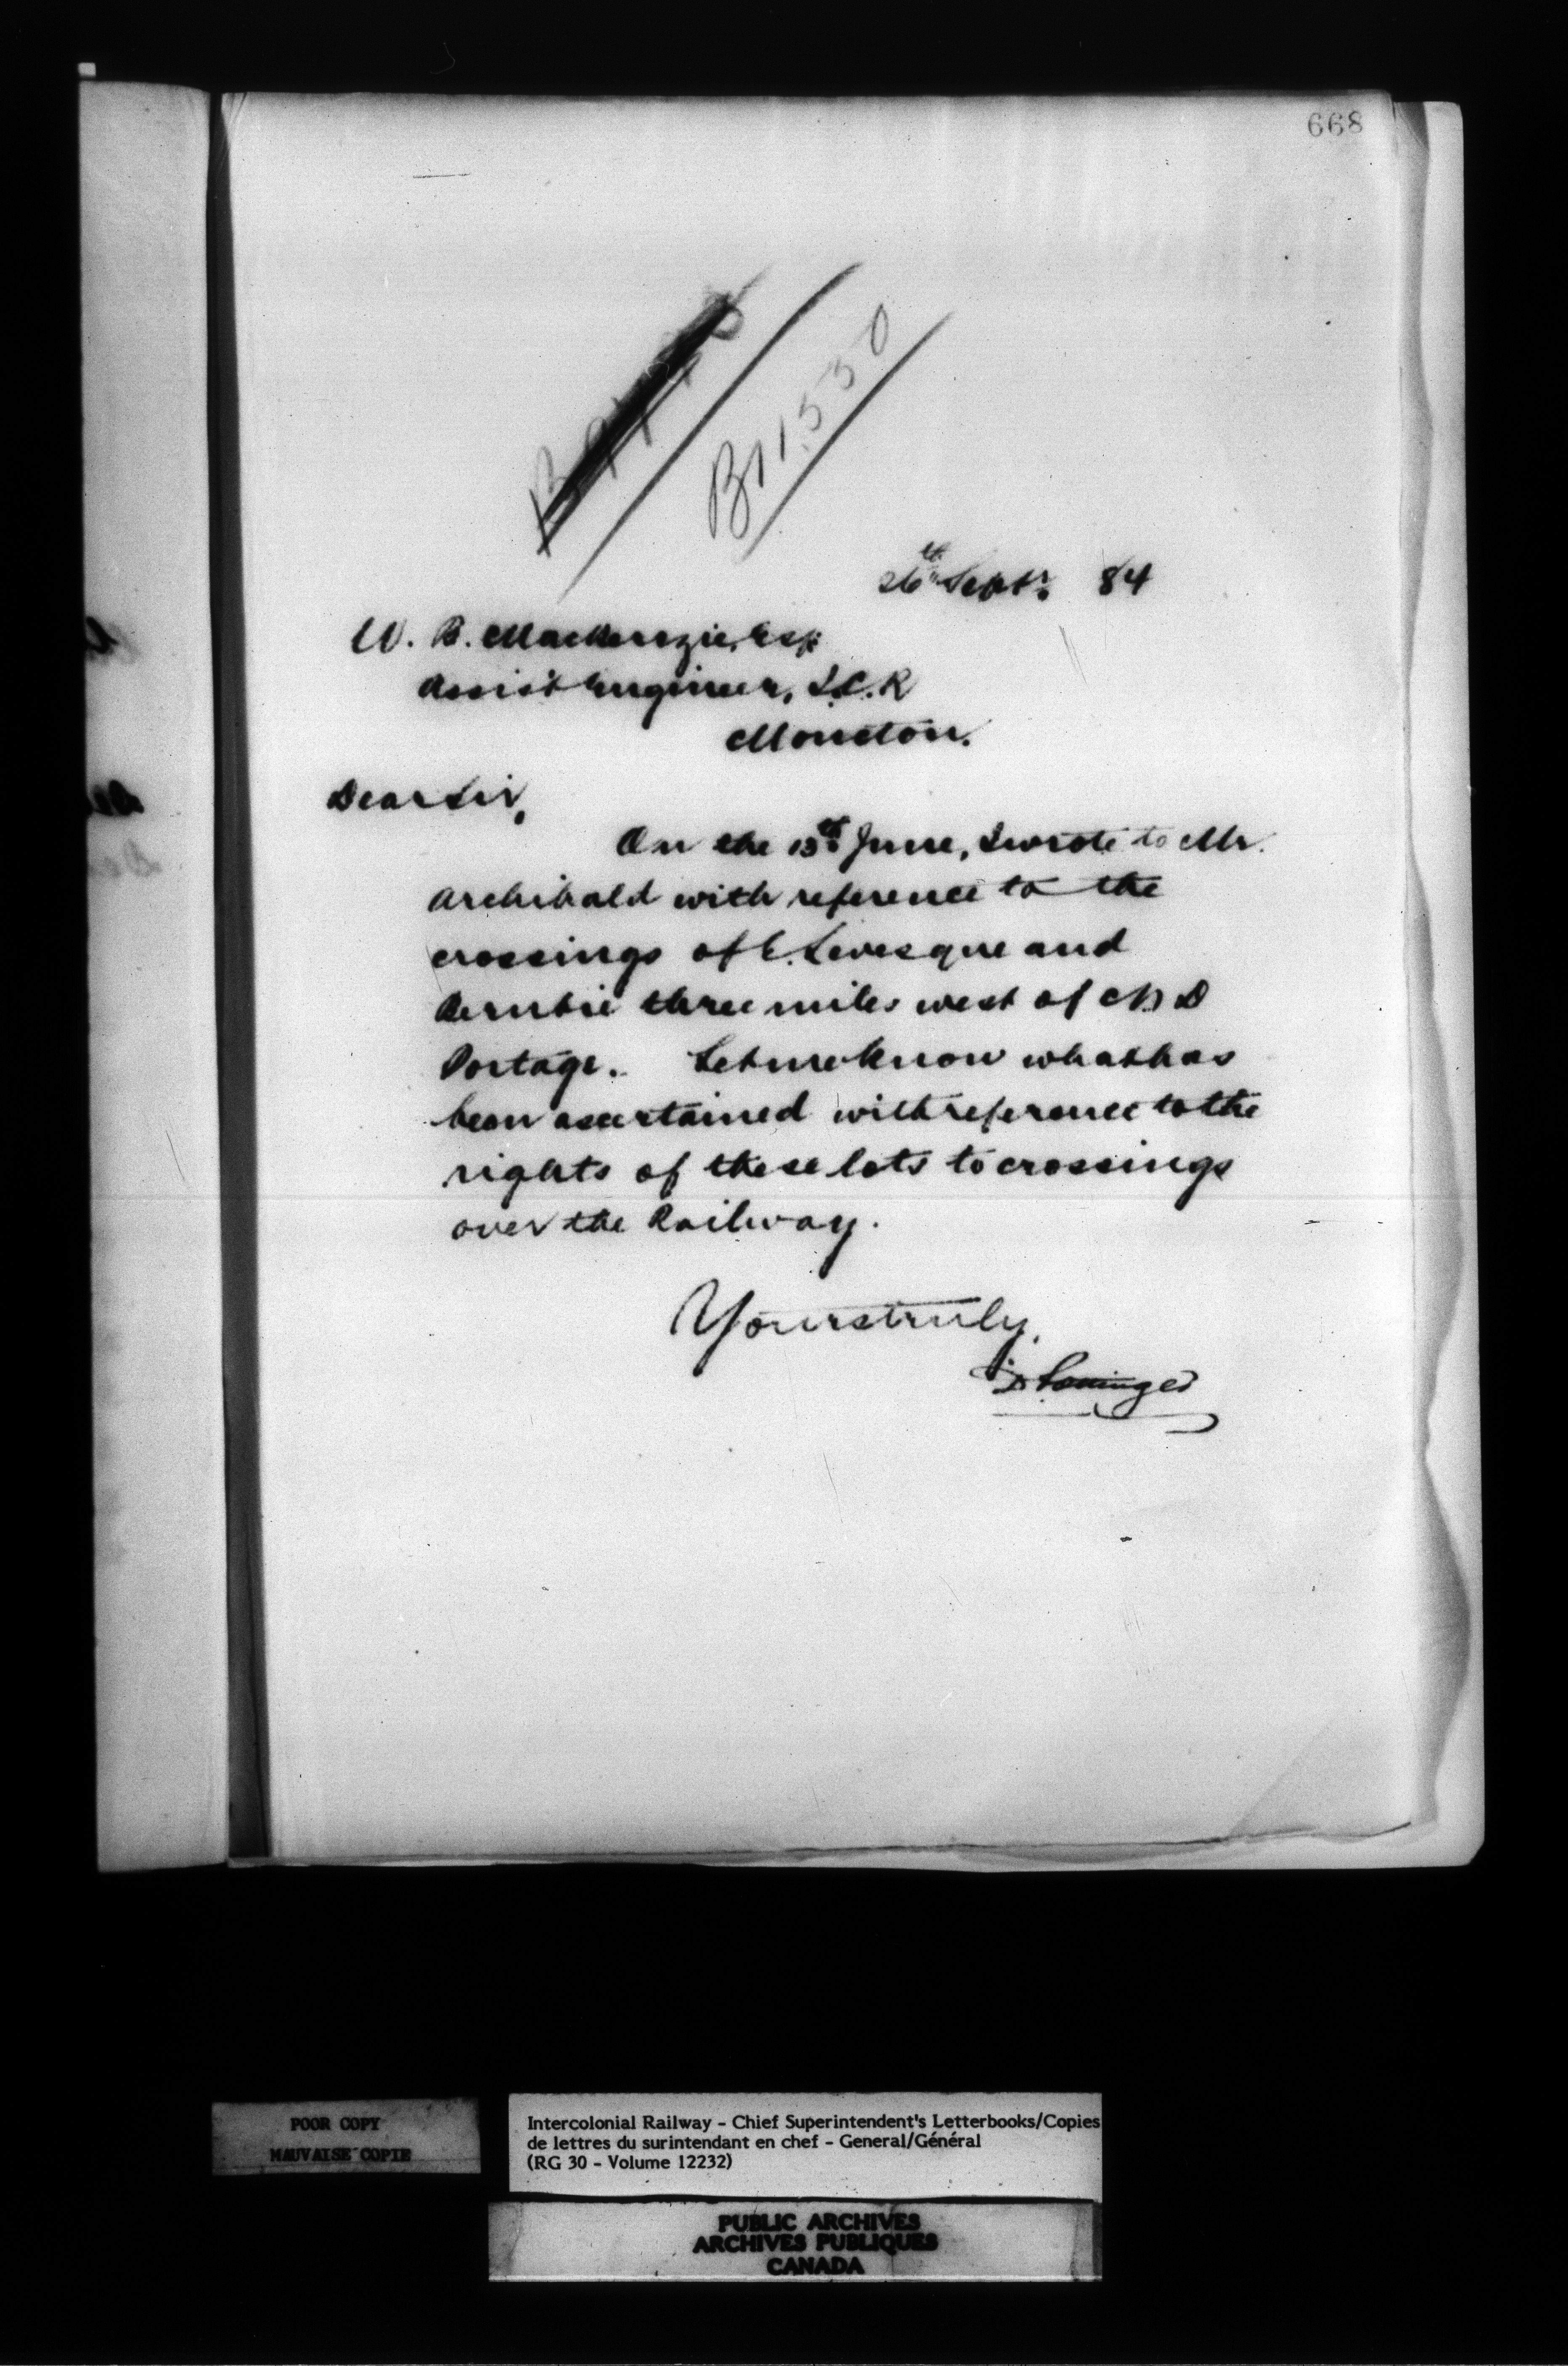 668
B11530
26th Sept. 84
W. B. MacKenzie, Esq.
Assist Engineer, I.C.R
Moncton.
Dear Sir,
On the 13th June, I wrote to Mr.
Archibald with reference to the
crossings of E. Levesque and
three miles west of N D
Portage. Let me know what has
been ascertained with reference to the
rights of these lots to crossings
over the Railway.
Yours truly,
D Pottinger
POOR COPY
MAUVAISE COPIE
Intercolonial Railway - Chief Superintendent's Letterbooks/Copies
de lettres du surintendant en chef - General/Général
(RG 30 - Volume 12232)
PUBLIC ARCHIVES
ARCHIVES PUBLIQUES
CANADA